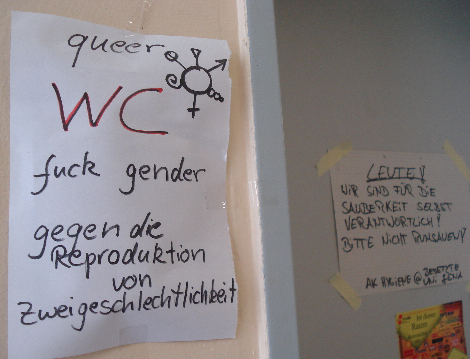 queer
WC
fuck gender
gegen die
Reproduktion
von
Zweigeschlechtlichkeit
LEUTE!
WIR SIND FÜR DIE
SAUBERKEIT SELBST
VERANTWORTLICH!
BITTE NICHT RUMSAUEN!
AK HYGIENE @ BESETZTE
UNI JENA